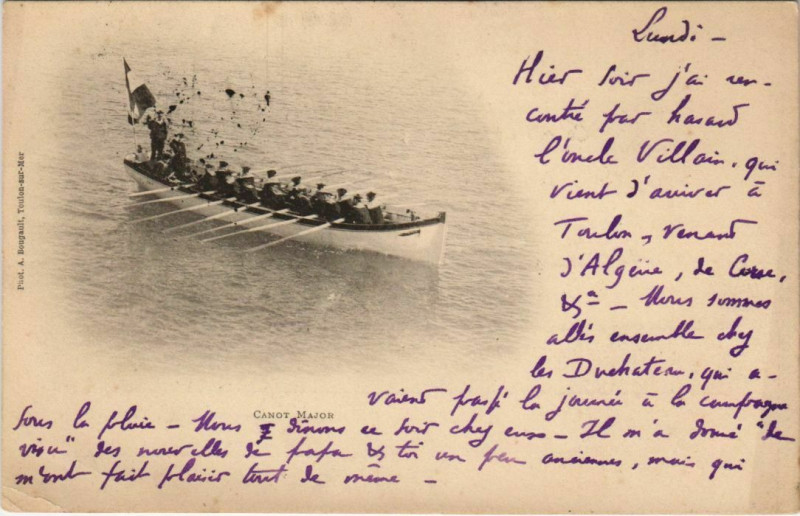 Lundi -
Hier soir j'ai ren-
contré par hasard
l'oncle Villain, qui
vient d'arriver à
Toulon, venant
d'Algérie, de Corse,
&ª - Nous sommes
allés ensemble chez
les Duchateau, qui a-
vaient passé la journée à la campagne
sous la pluie - Nous y dînons ce soir chez eux - Il m'a donné "de
visu" des nouvelles de papa & toi un peu anciennes, mais qui
m'ont fait plaisir tout de même -
CANOT MAJOR
Phot. A. Bougault, Toulon-sur-Mer